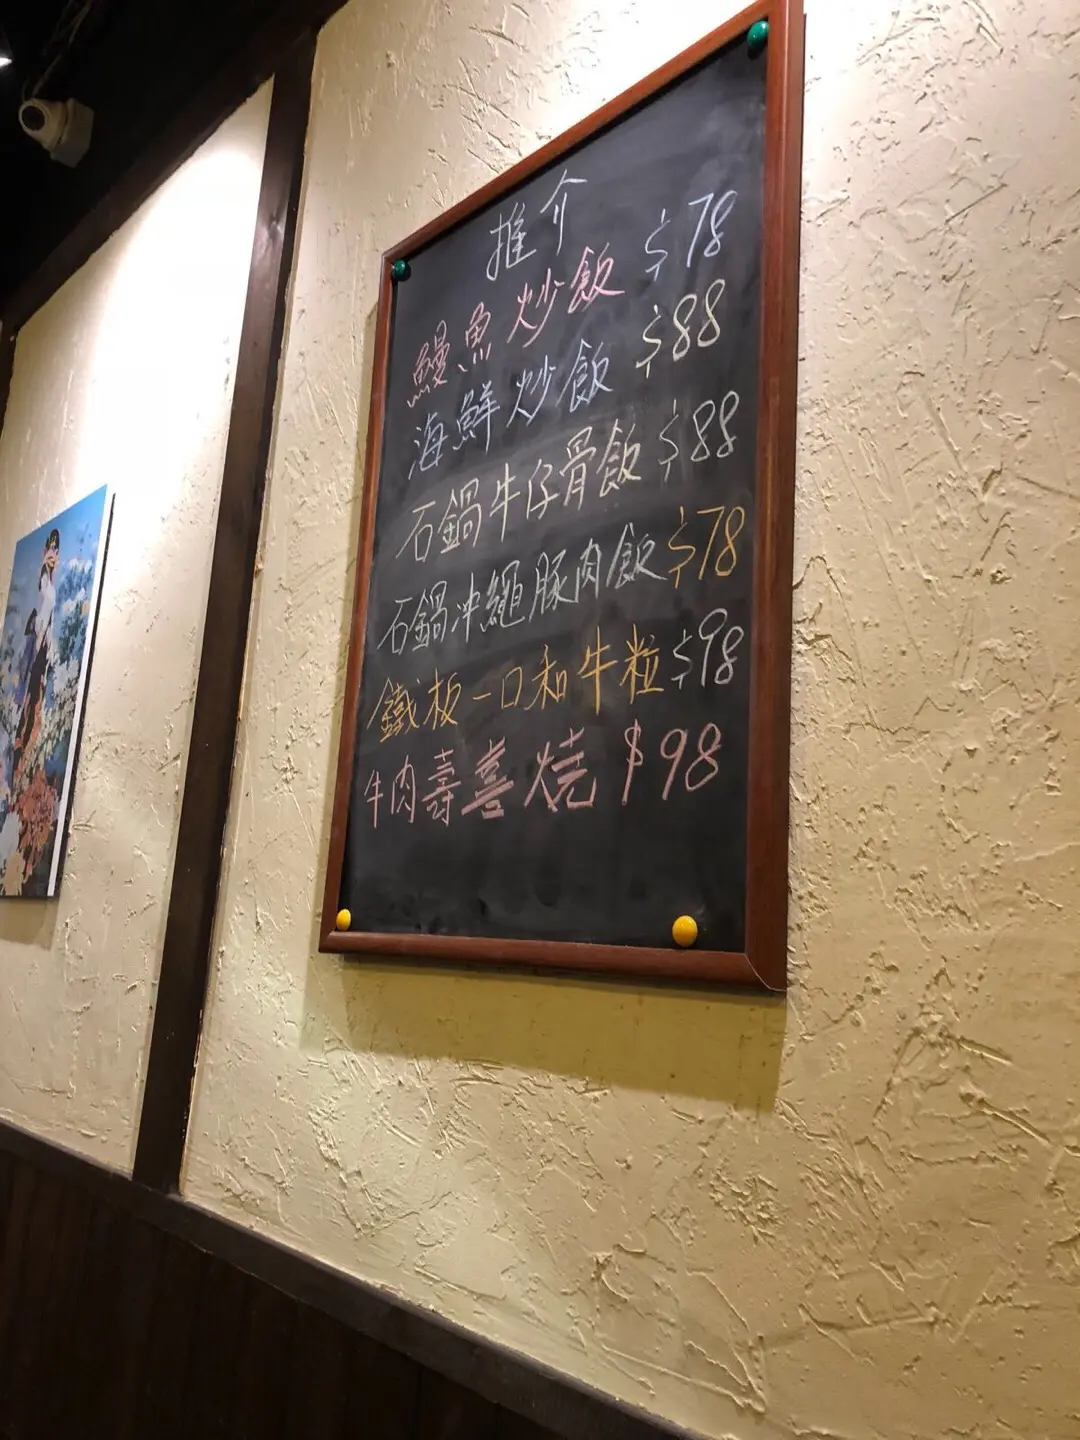 推介
鰻魚炒飯 $78
海鮮炒飯 $88
石鍋牛仔骨飯 $88
石鍋沖繩豚肉飯 $78
鐵板一口和牛粒 $98
牛肉壽喜燒 $98